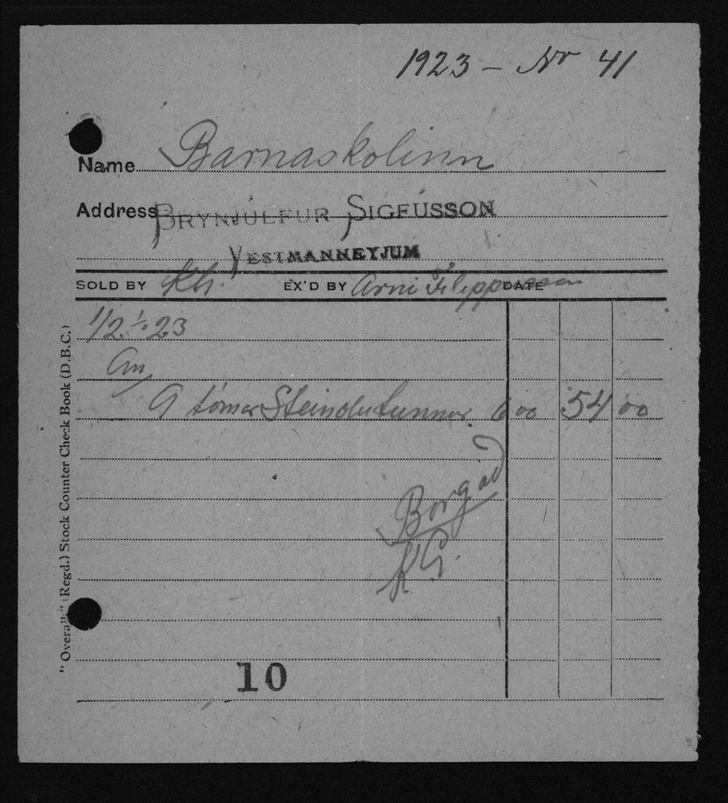 1923 – Nr 41
Name Barnaskolinn
Address BRYNJÚLFUR SIGFÚSSON
VESTMANNEYJUM
SOLD BY Kh. EX'D BY Arni Filippusson DATE
1/2 23
9 tómar Steinolutunnur. 6 00 54 00
Borgad
KG.
10
"Overall" (Regd.) Stock Counter Check Book (D.B.C.)